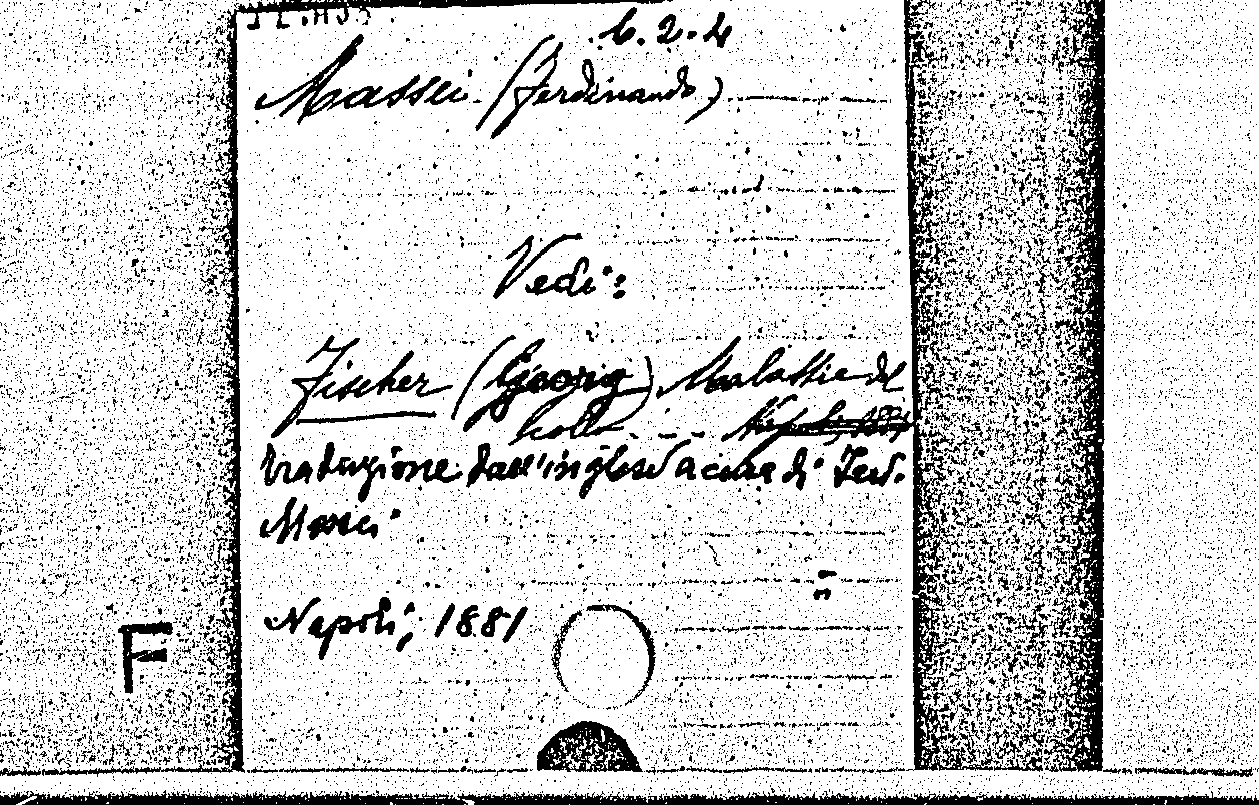 6.2.4
Massei (Ferdinando)
Vedi:
Fischer (Georg) Malattie del
collo - - - Napoli, 1881
traduzione dall'inglese a cura di Ferd.
Massei
Napoli, 1881
F